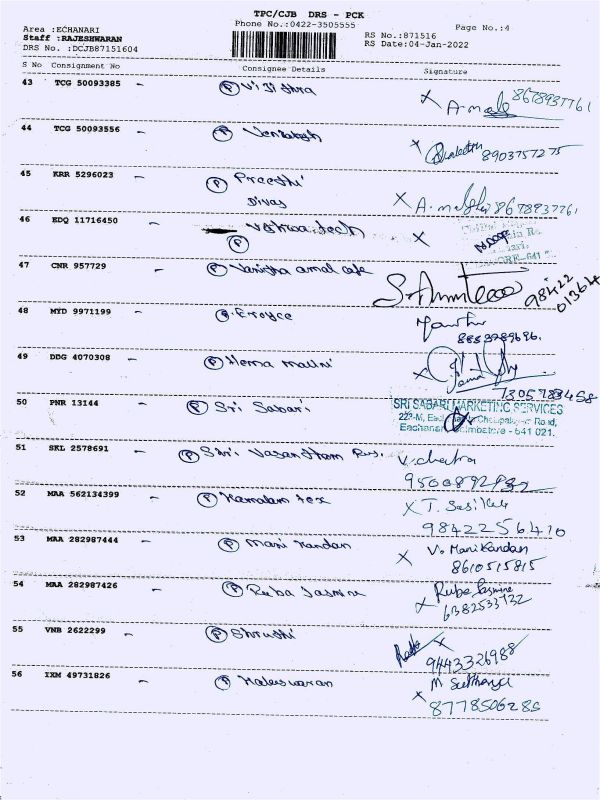 TPC/CJB DRS - PCK
Area :ECHANARI Phone No.:0422-3505555 Page No.:4
Staff :RAJESHWARAN RS No.:871516
DRS No. :DCJB87151604 RS Date:04-Jan-2022
S No Consignment No Consignee Details Signature
43 TCG 50093385 - P 8678937761
44 TCG 50093556 - P Venkatesh 8903757275
45 KRR 5296023 - P Preethi
Divas 8678937761
46 EDQ 11716450 - P Vishwa tech
47 CNR 957729 - P Vanigha amal cafe 98422
01364
48 MYD 9971199 - P Eroyce
8883789696.
49 DDG 4070308 - P Hema malini
7305783458
50 PNR 13144 - P Sri Sabari SRI SABARI MARKETING SERVICES
Road,
Eachanari, Coimbatore - 641 021.
51 SKL 2578691 - P Shri Vasantham
9500892932
52 MAA 562134399 - P Kamalam tex X T. Sasikala
9842256410
53 MAA 282987444 - P Mani Kandan X V. Manikandan
8610515815
54 MAA 282987426 - P Ruba Jasmine X Ruba Jasmine
6382533732
55 VNB 2622299 - P Shruthi X
9443326988
56 IXM 49731826 - P Maleswaran X M
8778506285